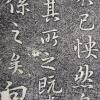 己怏然
其所之既
係之矣向